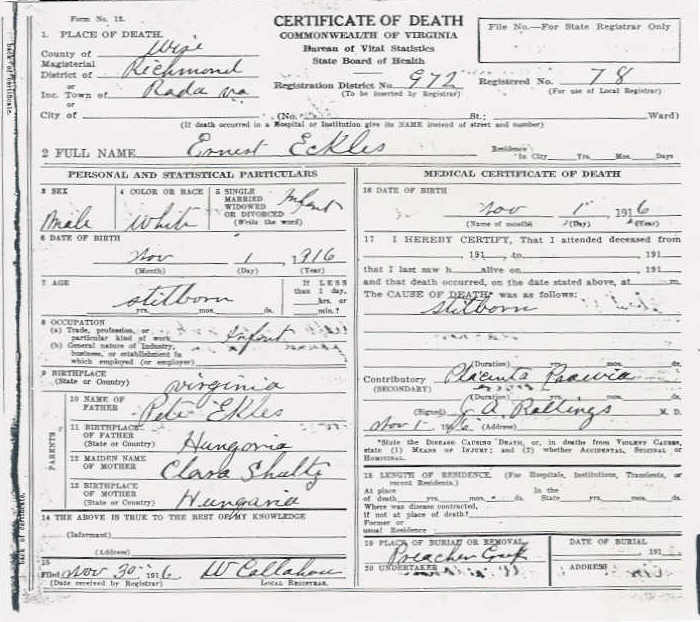 Form No. 12.
CERTIFICATE OF DEATH
COMMONWEALTH OF VIRGINIA
Bureau of Vital Statistics
State Board of Health
File No.—For State Registrar Only
1. PLACE OF DEATH.
County of Wise
Magisterial
District of Richmond
or
Inc. Town of Rada Va
or
City of
Registration District No. 972
(To be inserted by Registrar)
Registered No. 78
(For use of Local Registrar)
(No. St.; Ward)
(If death occurred in a Hospital or Institution give its NAME instead of street and number)
2 FULL NAME Ernest Eckles
Residence
In City Yrs. Mos. Days
PERSONAL AND STATISTICAL PARTICULARS
3 SEX
Male
4 COLOR OR RACE
White
5 SINGLE
MARRIED
WIDOWED
OR DIVORCED
(Write the word)
Infant
6 DATE OF BIRTH
Nov 1, 1916
(Month) (Day) (Year)
7 AGE
stilborn
yrs. mos. ds.
If LESS
than 1 day,
hrs. or
min.?
8 OCCUPATION
(a) Trade, profession, or
particular kind of work
Infant
(b) General nature of Industry,
business, or establishment in
which employed (or employer)
9 BIRTHPLACE
(State or Country)
Virginia
PARENTS
10 NAME OF
FATHER
Pete Ekles
11 BIRTHPLACE
OF FATHER
(State or Country)
Hungovia
12 MAIDEN NAME
OF MOTHER
Clara Shultz
13 BIRTHPLACE
OF MOTHER
(State or Country)
Hungaria
14 THE ABOVE IS TRUE TO THE BEST OF MY KNOWLEDGE
(Informant)
(Address)
15
Filed Nov 30 1916
(Date received by Registrar)
W Callahan
LOCAL REGISTRAR.
MEDICAL CERTIFICATE OF DEATH
16 DATE OF BIRTH
Nov 1st 1916
(Name of month) (Day) (Year)
17 I HEREBY CERTIFY, That I attended deceased from
, 191 , to , 191
that I last saw h alive on , 191
and that death occurred, on the date stated above, at m.
The CAUSE OF DEATH* was as follows:
stilborn
(Duration) yrs. mos. ds.
Contributory Placinta Prawia
(SECONDARY)
(Duration) yrs. mos. ds.
(Signed) M. D.
Nov 1 1916 (Address)
*State the DISEASE CAUSING DEATH, or, in deaths from VIOLENT CAUSES,
state (1) MEANS OF INJURY; and (2) whether ACCIDENTAL, SUICIDAL or
HOMICIDAL.
18 LENGTH OF RESIDENCE. (For Hospitals, Institutions, Transients, or
recent Residents.)
At place
of death yrs. mos. ds.
In the
State yrs. mos. ds.
Where was disease contracted,
if not at place of death?
Former or
usual Residence
19 PLACE OF BURIAL OR REMOVAL
Preacher Creek
DATE OF BURIAL
191
20 UNDERTAKER
ADDRESS